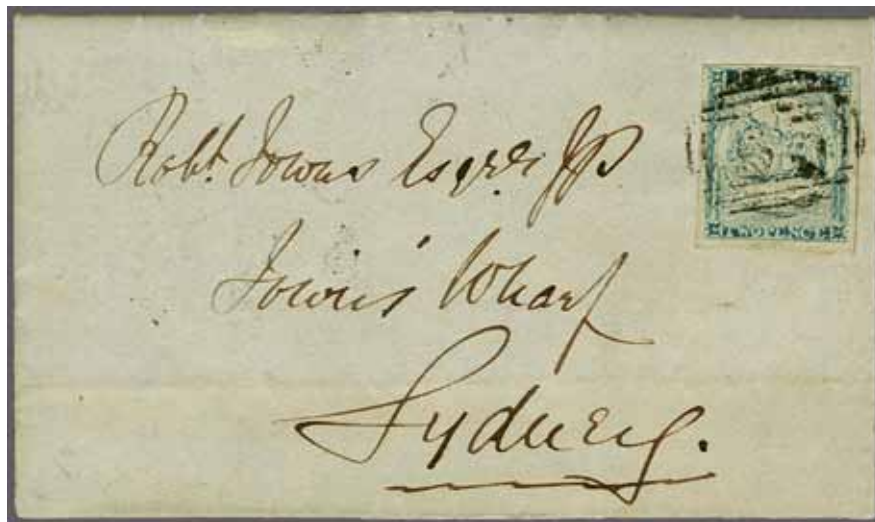 Robt. Towns Esqre JP
Towns' Wharf
Sydney.
POSTAGE
TWO PENCE